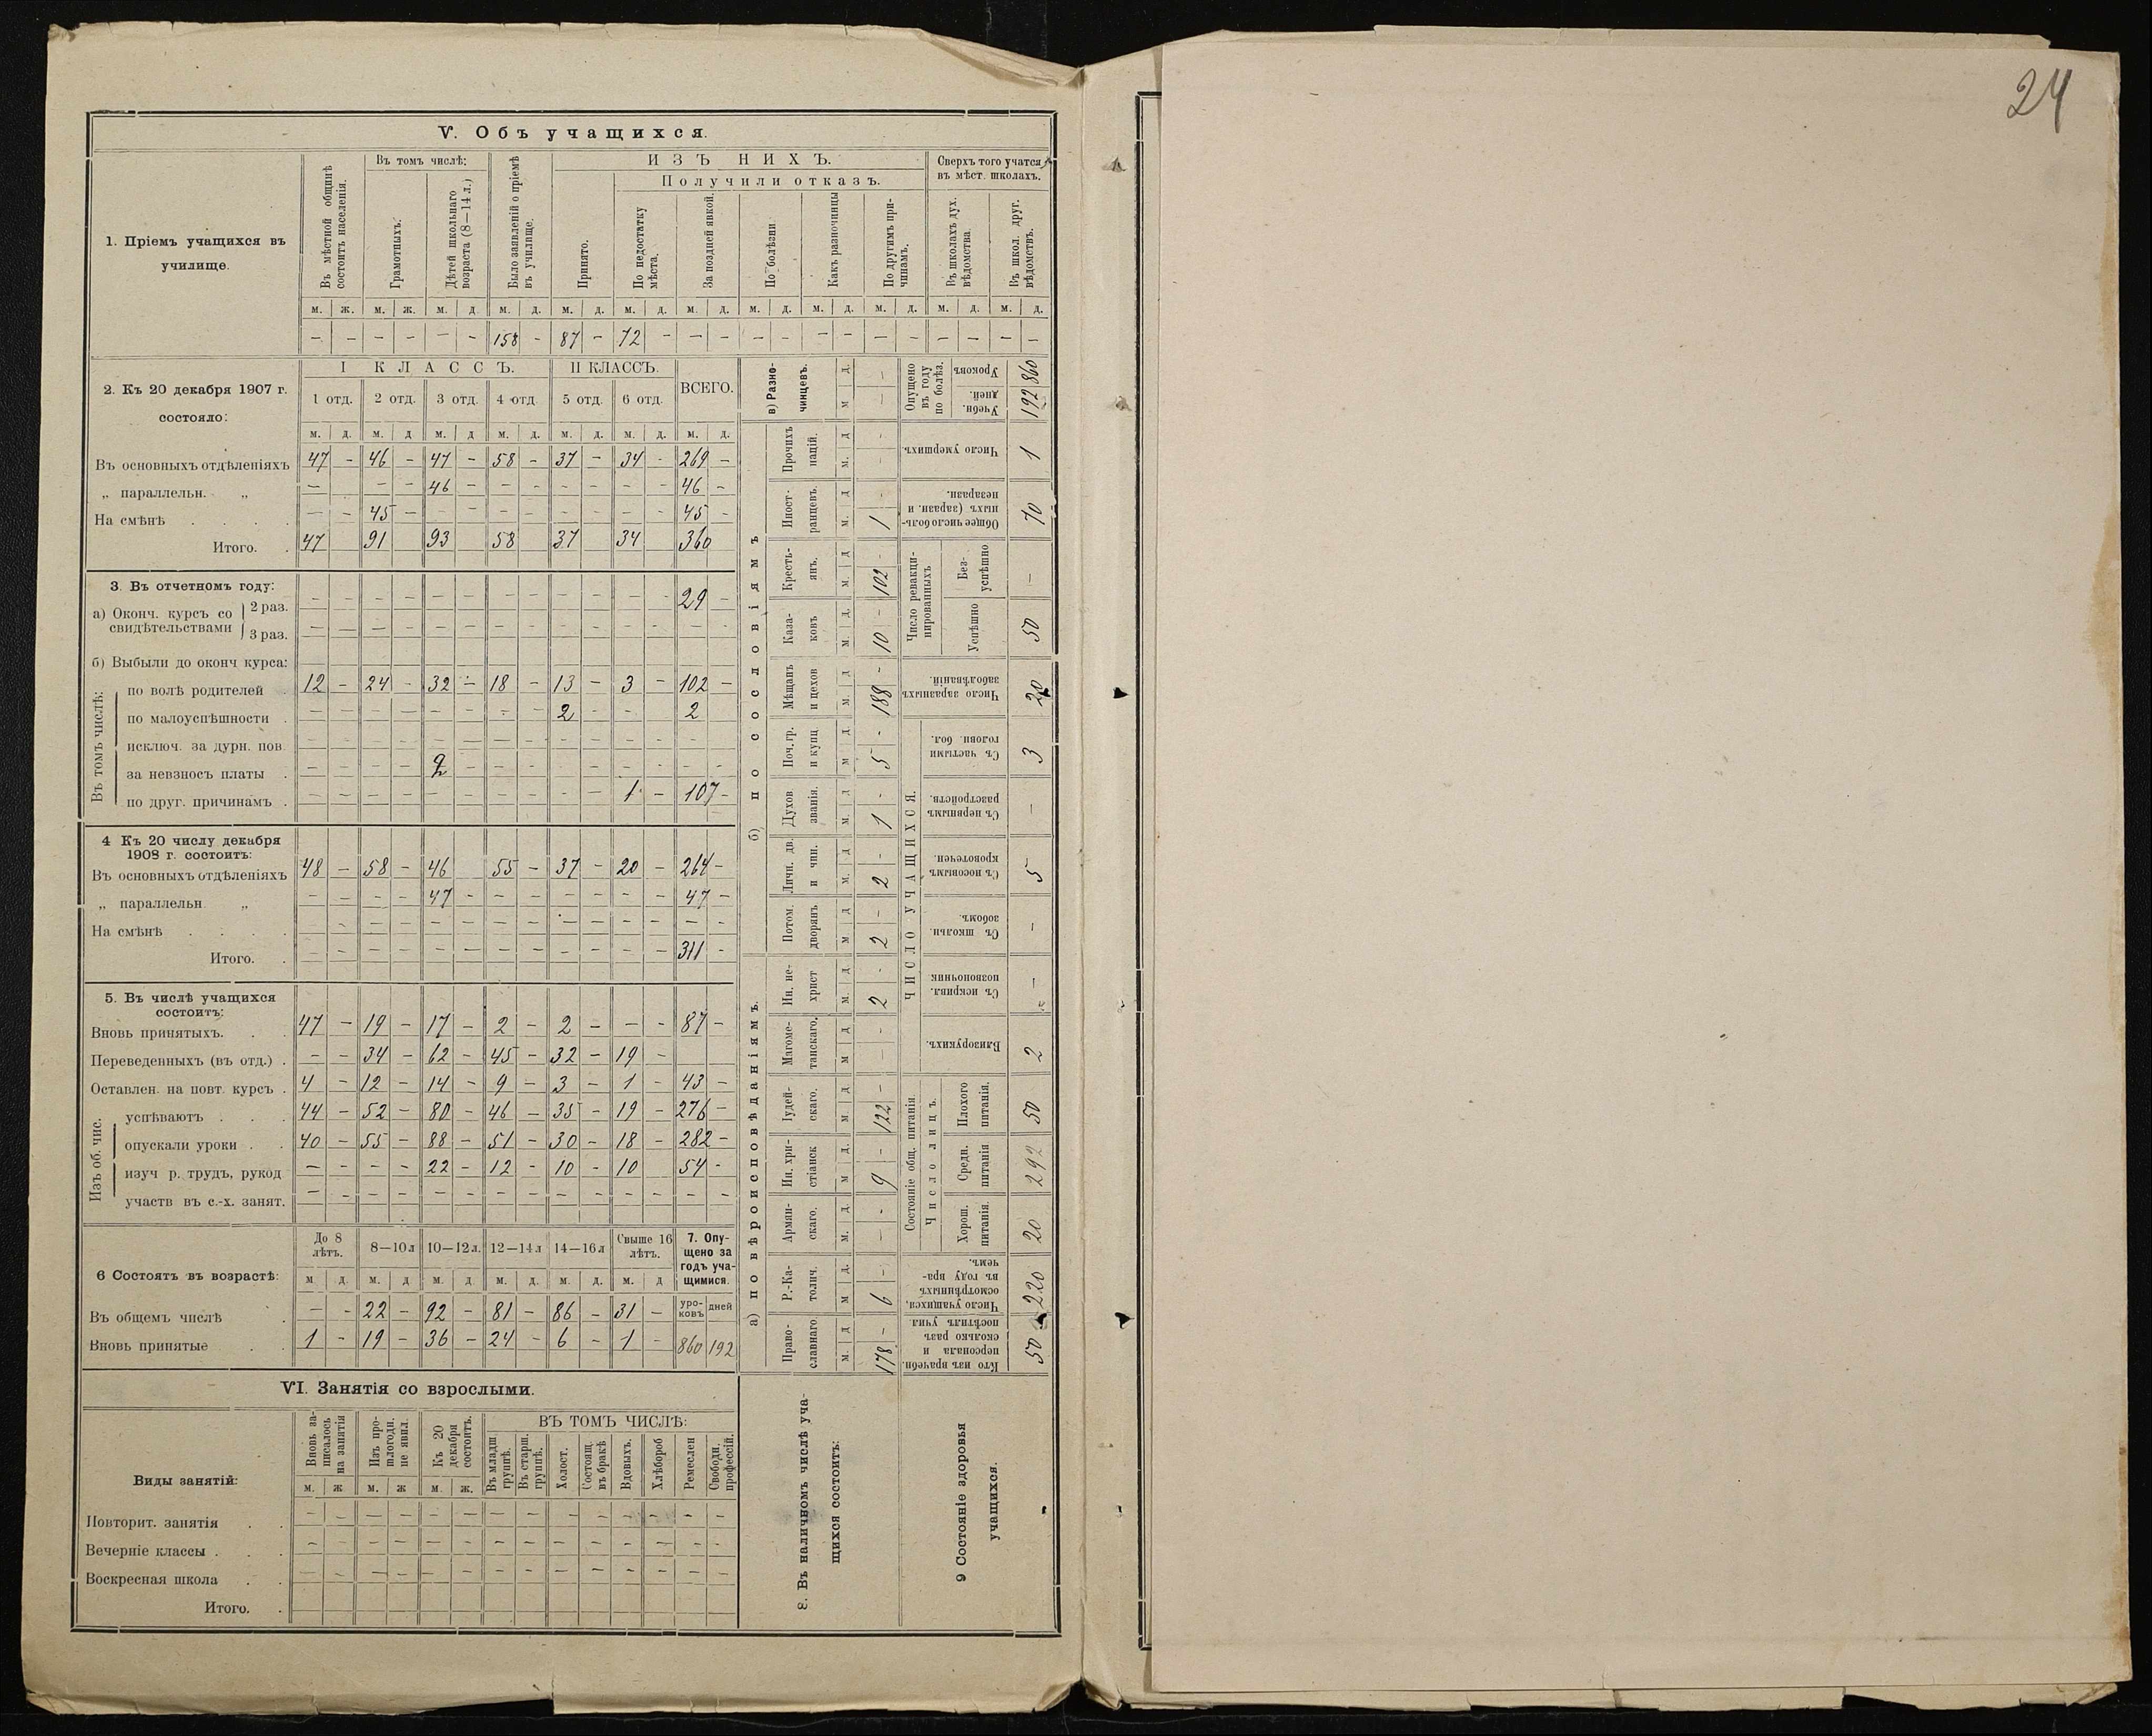 24
V. Объ учащихся.
1. Пріемъ учащихся въ училище.
Въ мѣстной общинѣ состоитъ населенія.
Въ томъ числѣ:
Грамотныхъ.
Дѣтей школьнаго возраста (8—14 л.)
Было заявленій о пріемѣ въ училище.
ИЗЪ НИХЪ.
Принято.
Получили отказъ.
По недостатку мѣста.
За поздней явкой.
По болѣзни
Какъ разночинцы
По другимъ причинамъ.
Сверхъ того учатся въ мѣст. школахъ.
Въ школахъ дух. вѣдомства
Въ школ. друг. вѣдомствъ.
м. ж. м. ж. м. д. м. д. м. д. м. д. м. д. м. д. м. д. м. д. м. д. м. д.
— — — — — — 158 — 87 — 72 — — — — — — — — — — — — —
2. Къ 20 декабря 1907 г. состояло:
I КЛАССЪ. II КЛАССЪ. ВСЕГО.
1 отд. 2 отд. 3 отд. 4 отд. 5 отд. 6 отд.
м. д. м. д м. д м. д. м. д. м. д. м. д.
Въ основныхъ отдѣленіяхъ 47 — 46 — 47 — 58 — 37 — 34 — 269 —
„ параллельн. „ — — — 46 — — — — — — — 46 —
На смѣнѣ — — 45 — — — — — — — — — 45 —
Итого. 47 91 93 58 37 34 360
3. Въ отчетномъ году:
а) Оконч. курсъ со свидѣтельствами
2 раз. — — — — — — — — — — — — 29 —
3 раз. — — — — — — — — — — — — — —
б) Выбыли до оконч курса:
Въ томъ числѣ:
по волѣ родителей 12 — 24 — 32 — 18 — 13 — 3 — 102 —
по малоуспѣшности — — — — — — — — 2 — — 2
исключ. за дурн. пов — — — — — — — — — — — — — —
за невзносъ платы — — — — 2 — — — — — — — — —
по друг. причинамъ — — — — — — — — — — 1 — 107 —
4 Къ 20 числу декабря 1908 г. состоитъ:
Въ основныхъ отдѣленіяхъ 48 — 58 — 46 55 — 37 — 20 — 264 —
„ параллельн „ — — — — 47 — — — — — — — 47 —
На смѣнѣ — — — — — — — — — — — — — —
Итого. — — — — — — — — — — — — 311 —
5. Въ числѣ учащихся состоитъ:
Вновь принятыхъ. 47 — 19 — 17 — 2 — 2 — — — 87 —
Переведенныхъ (въ отд.) — — 34 — 62 — 45 — 32 — 19 —
Оставлен. на повт. курсъ 4 — 12 — 14 — 9 — 3 — 1 — 43 —
Изъ об. чис.
успѣваютъ 44 — 52 — 80 — 46 — 35 — 19 — 276 —
опускали уроки 40 — 55 — 88 — 51 — 30 — 18 — 282 —
изуч р. трудъ, рукод — — — — 22 — 12 — 10 — 10 54 —
участв въ с.-х. занят. — — — — — — — — — — — — — —
6 Состоятъ въ возрастѣ:
До 8 лѣтъ. 8—10 л 10—12 л. 12—14 л 14—16 л Свыше 16 лѣтъ.
7. Опущено за годъ учащимися.
м д. м. д м. д. м. д. м. д. м. д
уроковъ дней
Въ общемъ числѣ — — 22 — 92 — 81 — 86 — 31 —
Вновь принятые 1 — 19 — 36 — 24 — 6 — 1 — 860 192
VI. Занятія со взрослыми.
Виды занятій:
Вновь записалось на занятія
Изъ прошлогодн. не явил.
Къ 20 декабря состоитъ.
ВЪ ТОМЪ ЧИСЛѢ:
Въ младш группѣ.
Въ старш. группѣ.
Холост.
Состоящ. въ бракѣ
Вдовыхъ.
Хлѣбороб
Ремеслен
Свободн. профессій.
м. ж м. ж м. ж.
Повторит. занятія — — — — — — — — — — — — — —
Вечерніе классы — — — — — — — — — — — — — —
Воскресная школа — — — — — — — — — — — — — —
Итого.
8. Въ наличномъ числѣ учащихся состоитъ:
а) по вѣроисповѣданіямъ.
Православнаго м. д 178 —
Р.-Католич. м д. 6 —
Армянскаго. м. д. — —
Ин. христіанск м д. 9 —
Іудейскаго. м д 122 —
Магометанскаго. м д — —
Ин. нехрист м. д 2 —
б) по сословіямъ
Потом. дворянъ м д 2 —
Личн. дв. и чин. м. д 2 —
Духов званія. м. д 1 —
Поч. гр. и купц м д 5 —
Мѣщанъ и цехов м. д 188 —
Казаковъ м. д. 10 —
Крестьянъ. м. д 102 —
Иностранцевъ. м. д 1 —
Прочихъ націй. м. д — —
в) Разночинцевъ. м д. — —
9 Состояніе здоровья учащихся.
Кто изъ врачебн. персонала и сколько разъ посѣтилъ учил. 50
Число учащихся, осмотрѣнныхъ въ году врачемъ. 220
Состояніе общ. питанія.
Число лицъ.
Хорош. питанія. 20
Средн. питанія 292
Плохого питанія. 50
ЧИСЛО УЧАЩИХСЯ.
Близорукихъ. 2
Съ искривл. позвоночника —
Съ школьн. зобомъ. —
Съ носовымъ кровотечен. 5
Съ нервнымъ разстройств. —
Съ частыми головн. бол. 3
Число заразныхъ заболѣваній. 20
Число ревакцинированныхъ
Успѣшно 50
Безуспѣшно —
Общее число больныхъ (заразн. и незаразн. 70
Число умершихъ. 1
Опущено въ году по болѣз.
Учебн. дней. 192
Уроковъ 860